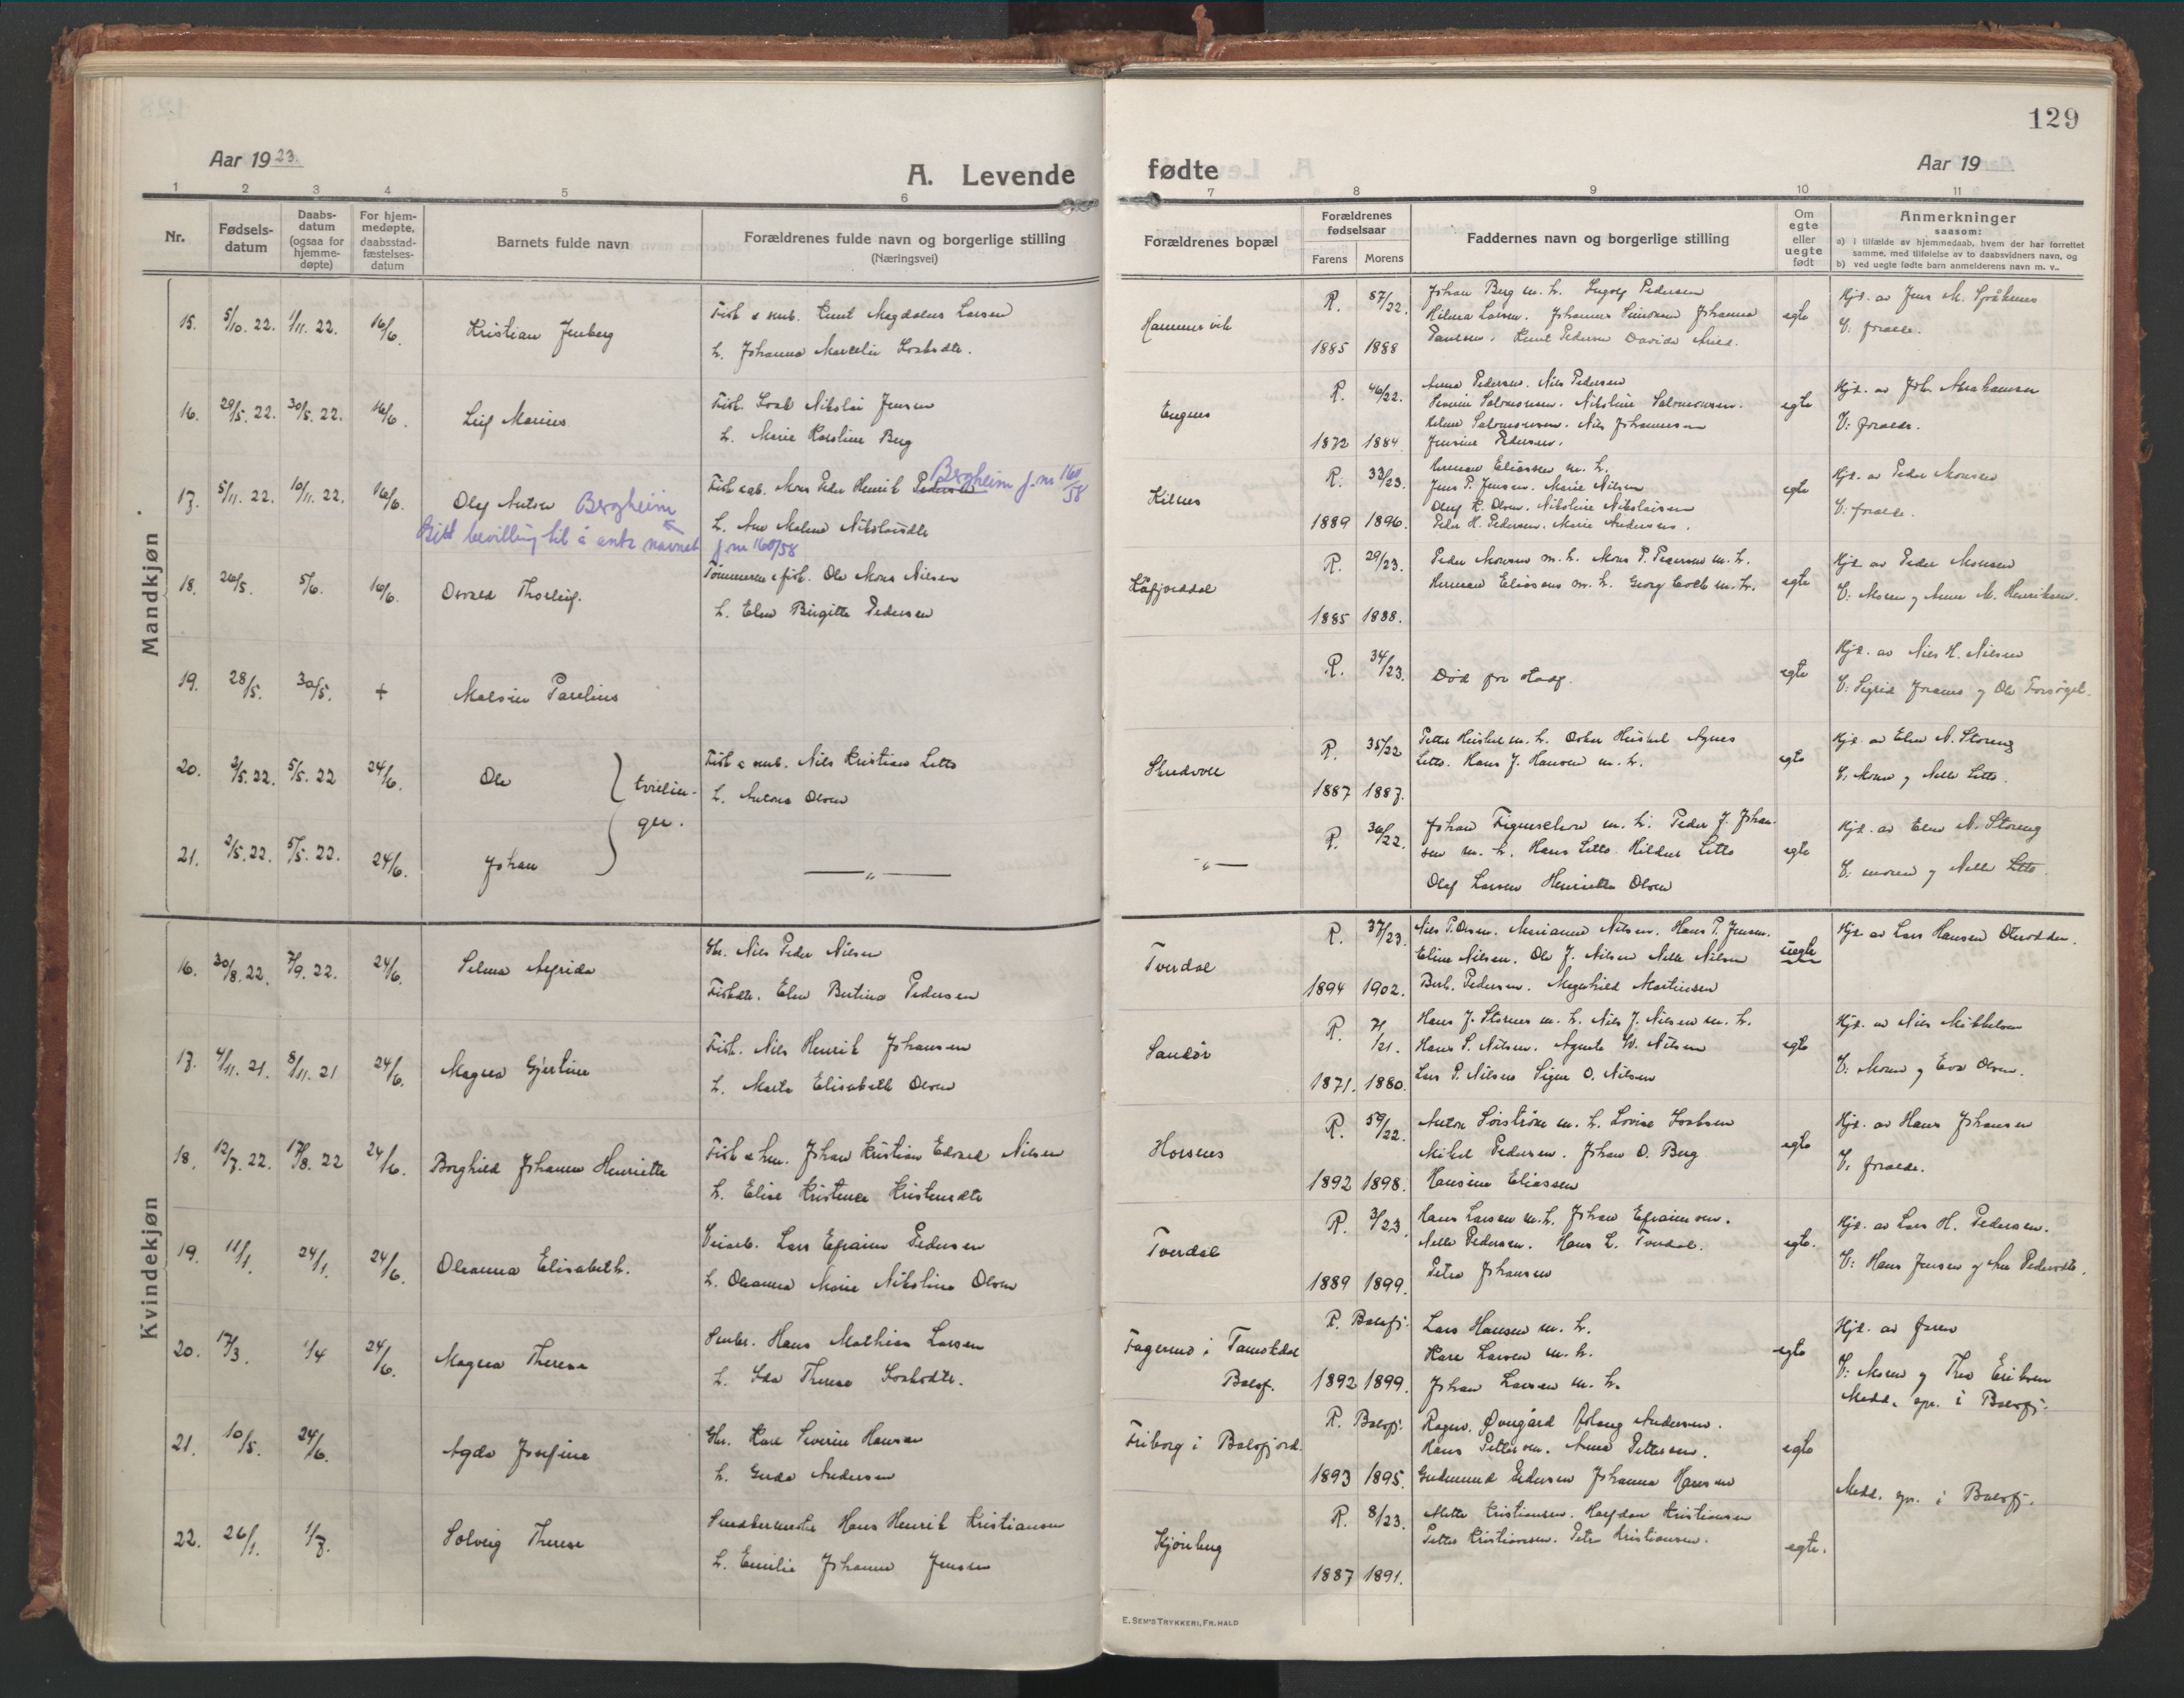 129
Aar 1923.
A. Levende fødte
Aar 19
1 2 3 4 5 6 7 8 9 10 11
Nr.
Fødsels-
datum
Daabs-
datum
(ogsaa for
hjemme-
døpte)
For hjem-
medøpte,
daabsstad-
fæstelses-
datum
Barnets fulde navn
Forældrenes fulde navn og borgerlige stilling
(Næringsvei)
Forældrenes bopæl
Forældrenes
fødselsaar
Farens Morens
Faddernes navn og borgerlige stilling
Om
egte
eller
uegte
født
Anmerkninger
saasom:
a) i tilfælde av hjemmedaab, hvem der har forrettet
samme, med tilføielse av to daabsvidners navn, og
b) ved uegte fødte barn anmelderens navn m. v..
Mandkjøn
15. 5/10. 22. 1/11. 22. 16/6. Kristian Jenberg
Fisk. & smb. Knut Magdalus Larsen
h. Johanna Marcelie Isaksdtr.
Hamnesvik
R. 87/22.
1885 1888
Johan Berg m. h. Ingolf Pedersen
Hilma Larsen. Johannes Simonsen Johanna
Paulsen. Knut Pedersen Davida
egte
Hjd. av Jens M.
V: forælde.
16. 29/5. 22. 30/5. 22. 16/6. Leif Marius
Fisk. Isak Nikolai Jensen
h. Marie Karoline Berg
Engnes
R. 46/22.
1872 1884.
Anna Pedersen. Nils Pedersen
Severin Salomonsen. Nikoline Salomonsen.
Helene Salomonsen. Nils Johannesen
Jensine Pedersen.
egte
Hjd. av Joh. Abrahamsen
V: forældr.
17. 5/11. 22. 10/11. 22. 16/6. Olaf Anton Bergheim
Fisk & gb. Mons Peder Henrik Pedersen Bergheim j.nr 160/58
h. Ane Malene Nikolaisdtr
Gitt bevilling til å anta navnet j nr 160/58
Kilnes
R. 33/23.
1889 1896.
Herman Eliassen m. h.
Jens P. Jensen. Marie Nilsen
Oluf K. Olsen. Nikoline Nikolaisen
Peder H. Pedersen. Marie Andersen.
egte
Hjd. av Peder Monsen
V: forælde.
18. 26/5. 5/6. 16/6. Osvald Thorleif.
Tømmerm & fisk. Ole Mons Nilsen
h. Elen Birgitte Pedersen
Kåfjorddal
R. 29/23.
1885 1888.
Peder Monsen m. h. Mons P. Pedersen m. h.
Herman Eliassen m. h. Georg m. h.
egte
Hjd av Peder Monsen
V: Moren og Anne M. Henriksen.
19. 28/5. 30/5. + Malvin Parelius
R. 34/23.
Død før stadf.
egte
Hjd. av Nils H. Nilsen
V: Sigrid og Ole
20. 2/5. 22. 5/5. 22 24/6. Ole
tvillin-
ger.
Fisk & smb. Nils Kristian Letto
h. Antona Olsen
Skudvoll
R. 35/22
1887 1887.
Petter Heiskel m. h. Oskar Heiskel Agnes
Letto. Hans J. Hansen m. h.
egte
Hjd. av Elen N. Storeng
V: Moren og Nelle Letto.
21. 2/5. 22. 5/5. 22. 24/6. Johan
—„—
—„—
R. 36/22.
Johan Figenschou m. h. Peder J. Johan
sen m. h. Hans Letto. Hildur Letto
Olaf Larsen Henriette Olsen
egte
Hjd. av Elen N. Storeng
V: moren og Nelle Letto.
Kvindekjøn
16. 30/8. 22. 7/9. 22. 24/6. Selma Alfrida
Gbr. Nils Peder Nilsen
Fiskdtr. Elen Bertina Pedersen
Tverdal
R. 37/23.
1894 1902.
Nils P. Olsen. Marianne Nilsen. Hans P. Jensen.
Eline Nilsen. Ole J. Nilsen Nelle Nilsen
Berh. Pedersen. Magnhild Martinsen
uegte
Hjd av Lars Hansen
17. 4/11. 21. 8/11. 21 24/6. Magna Gjertine
Fisk. Nils Henrik Johansen
h. Marta Elisabeth Olsen
Sandør
R. 71/21.
1871. 1880.
Hans J. Stornes m. h. Nils J. Nilsen m. h.
Hans S. Nilsen. Agnete W. Nilsen
Lars P. Nilsen Signe O. Nilsen
egte
Hjd. av Nils Mikkelsen
V: Moren og Eva Olsen.
18. 12/7. 22. 17/8. 22 24/6. Borghild Johanne Henriette
Fisk & Johan Kristian Edvard Nilsen
h. Elise Kristence Kristensdtr
Horsnes
R. 59/22.
1892 1898.
Anton Sørstrøm m. h. Lovise Isaksen
Mikal Pedersen. Johan O. Berg
Hansine Eliassen
egte
Hjd. av Hans Johansen
V: forælde.
19. 11/1. 24/1. 24/6. Oleanna Elisabeth.
Veiarb. Lars Efraim Pedersen
h. Oleanna Marie Nikoline Olsen
Tverdal
R. 3/23
1889 1899.
Hans Larsen m. h. Johan Efraimsen.
Nelle Pedersen. Hans L. Tverdal.
Petra Johansen
egte.
Hjd. av Lars H. Pedersen.
V: Hans Jensen og Ane Pedersdtr.
20. 17/3. 1/4 24/6. Magna Therese
Smbr. Hans Mathias Larsen
h. Ida Therese Isaksdtr.
Fagernes i Tamokdal
Balsf.
R. Balsfj.
1892 1899.
Lars Hansen m. h.
Kare Larsen m. h.
Johan Larsen m. h.
egte
Hjd. av faren
V: Moren og Thea Eriksen
Medd. spr. i Balsfj.
21. 10/5. 24/6. Agda Josefine
Gbr. Karl Severin Hansen
h. Gerda Andersen
Friborg i Balsfjord.
R. Balsfj.
1893 1895.
Ragnv. Øvergård Aslaug Andersen.
Hans Pettersen. Anna Pettersen.
Gudmund Pedersen Johanna Hansen
egte
Medd. spr. i Balsfj.
22. 26/1. 1/7. Solveig Therese
Smedkermester Hans Henrik Kristiansen
h. Emilie Johanne Jensen
Hjønberg
R. 8/23.
1887 1891.
Mette Kristiansen. Halfdan Kristiansen
Petter Kristiansen. Petra Kristiansen.
egte.
E. SEM'S TRYKKERI, FR. HALD